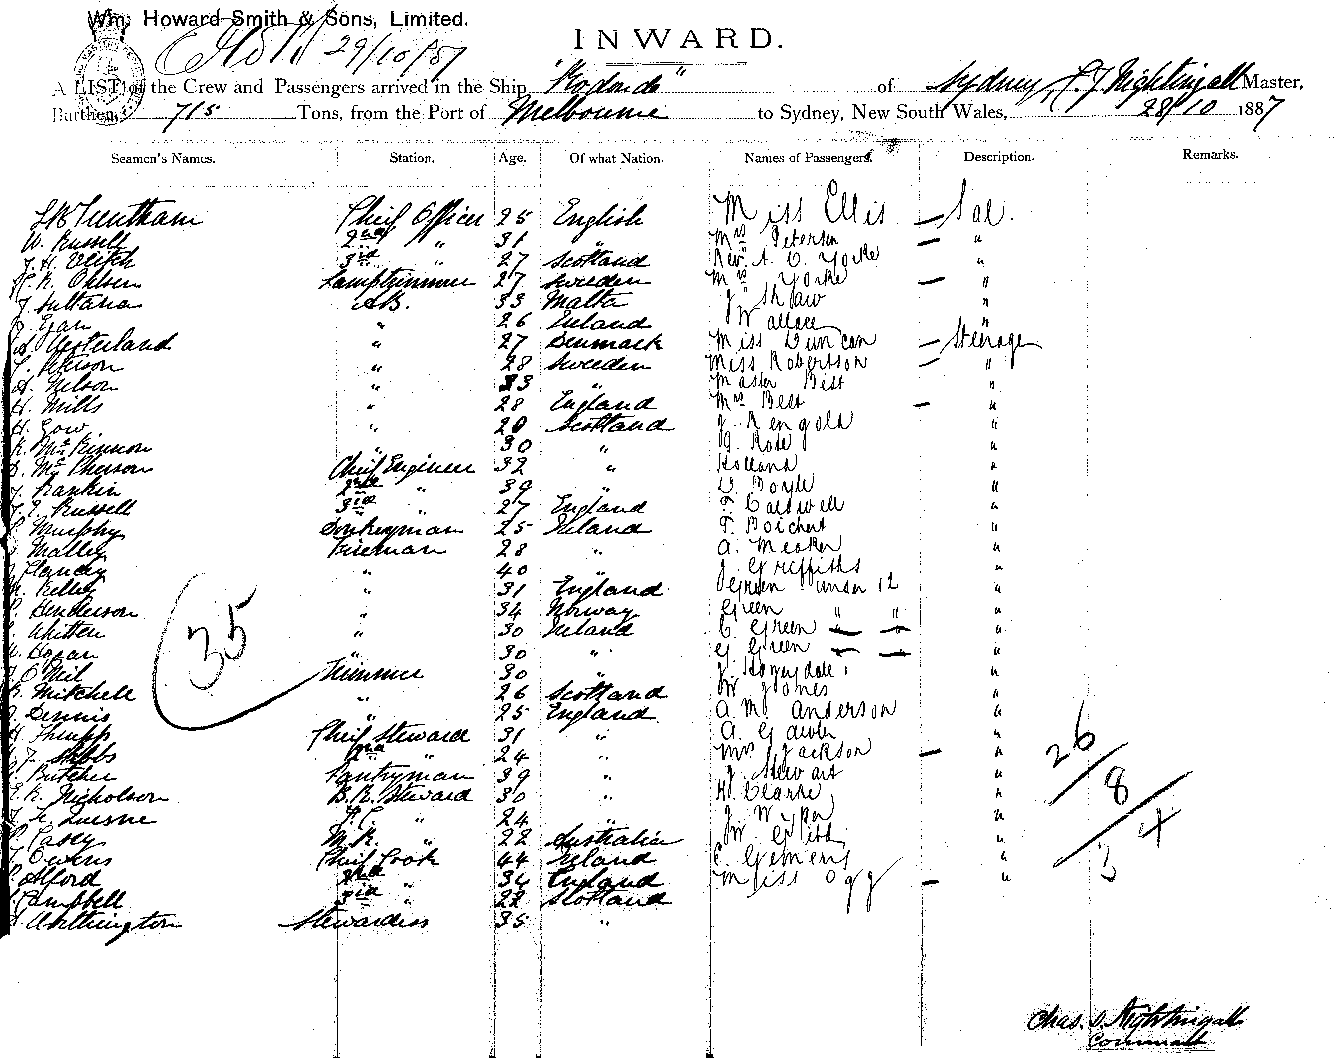 Wm. Howard Smith & Sons, Limited.
29/10/87
INWARD.
A LIST of the Crew and Passengers arrived in the Ship "Rodondo" of Sydney, Nightingall Master,
Burthen, 715 Tons, from the Port of Melbourne to Sydney, New South Wales, 28/10 1887
Seamen's Names. Station. Age. Of what Nation. Names of Passengers. Description. Remarks.
Trentham Chief Officer 25 English Miss Ellis — Sal.
W. Russell 2nd " 31 " Mrs Peterson — "
Veitch 3rd " 27 Scotland Revd A. C. Yorke "
Ohlsen Lamptrimmer 27 Sweeden Mrs Yorke — "
J. Sultana A.B. 33 Malta J. Shaw "
Egan " 26 Ireland Wallace "
Oesterland " 27 Denmark Miss Duncan — Steerage
Peterson " 28 Sweeden Miss Robertson — "
Nelson " 33 " Master Best "
H. Mills " 28 England Mrs Best — "
H. Gow " 20 Scotland J. Rengold "
McKinnon " 30 " Rose "
McPherson Chief Engineer 32 " Holland "
Rankin 2nd " 39 " Boyle "
Russell 3rd " 27 England Caldwell "
Murphy Donkeyman 25 Ireland Boichert "
Malley Fireman 28 " A. Meaker "
Clancy " 40 J. Griffiths "
Kelley " 31 England Green under 12 "
Henderson " 34 Norway Green " " "
Whitten " 30 Ireland C Green — — "
Hogan " 30 " G Green — — "
O'Neil Trimmer 30 " J. "
Mitchell " 26 Scotland W Jones "
Dennis " 25 England A. M. Anderson "
Thrupp Chief Steward 31 " A. "
Stibbs 2nd " 24 " Mrs Jackson — "
Butcher Pantryman 39 " J. Stewart "
Nicholson B.R. Steward 30 " H Clarke "
Le Quesne F.C. " 24 " J. "
Casey M.R. " 22 Australia W "
Owens Chief Cook 44 Ireland C. Clemens "
Alford 2nd " 34 England Miss Ogg — "
Campbell 3rd " 22 Scotland
Worthington Stewardess 35 "
35
26
8
4
3
Chas. S. Nightingall